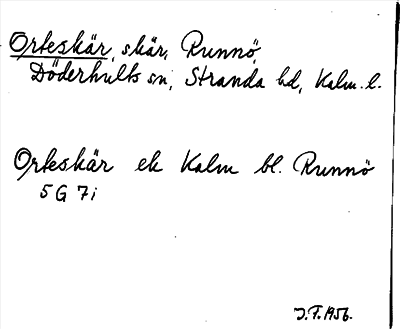 Orteskär, skär, Runnö,
Döderhults sn, Stranda hd, Kalm. l.
Orteskär ek Kalm bl. Runnö
5 G 7 i
J.F. 1956.